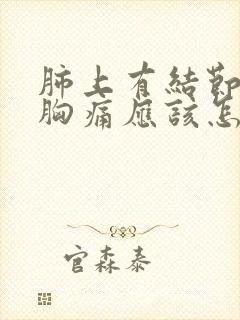 肺上有結節
胸痛應該怎
官森泰